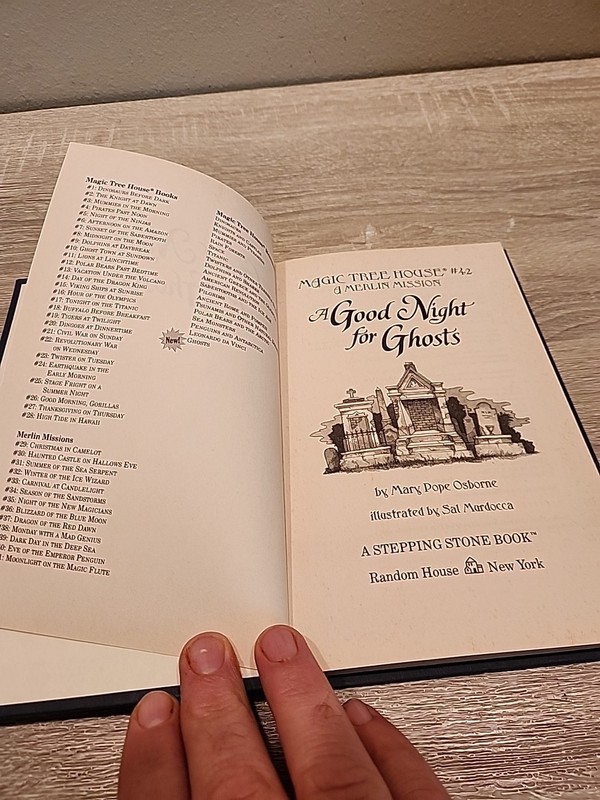 Magic Tree House® Books
#1: DINOSAURS BEFORE DARK
#2: THE KNIGHT AT DAWN
#3: MUMMIES IN THE MORNING
#4: PIRATES PAST NOON
#5: NIGHT OF THE NINJAS
#6: AFTERNOON ON THE AMAZON
#7: SUNSET OF THE SABERTOOTH
#8: MIDNIGHT ON THE MOON
#9: DOLPHINS AT DAYBREAK
#10: GHOST TOWN AT SUNDOWN
#11: LIONS AT LUNCHTIME
#12: POLAR BEARS PAST BEDTIME
#13: VACATION UNDER THE VOLCANO
#14: DAY OF THE DRAGON KING
#15: VIKING SHIPS AT SUNRISE
#16: HOUR OF THE OLYMPICS
#17: TONIGHT ON THE TITANIC
#18: BUFFALO BEFORE BREAKFAST
#19: TIGERS AT TWILIGHT
#20: DINGOES AT DINNERTIME
#21: CIVIL WAR ON SUNDAY
#22: REVOLUTIONARY WAR
ON WEDNESDAY
#23: TWISTER ON TUESDAY
#24: EARTHQUAKE IN THE
EARLY MORNING
#25: STAGE FRIGHT ON A
SUMMER NIGHT
#26: GOOD MORNING, GORILLAS
#27: THANKSGIVING ON THURSDAY
#28: HIGH TIDE IN HAWAII
Merlin Missions
#29: CHRISTMAS IN CAMELOT
#30: HAUNTED CASTLE ON HALLOWS EVE
#31: SUMMER OF THE SEA SERPENT
#32: WINTER OF THE ICE WIZARD
#33: CARNIVAL AT CANDLELIGHT
#34: SEASON OF THE SANDSTORMS
#35: NIGHT OF THE NEW MAGICIANS
#36: BLIZZARD OF THE BLUE MOON
#37: DRAGON OF THE RED DAWN
38: MONDAY WITH A MAD GENIUS
39: DARK DAY IN THE DEEP SEA
0: EVE OF THE EMPEROR PENGUIN
: MOONLIGHT ON THE MAGIC FLUTE
Magic Tree House®
DINOSAURS
KNIGHTS AND
MUMMIES AND
PIRATES
RAIN FORESTS
SPACE
TITANIC
TWISTERS AND OTHER
DOLPHINS AND
ANCIENT GREECE
AMERICAN REVOLUTION
SABERTOOTHS AND THE ICE
PILGRIMS
ANCIENT ROME AND POMPEII
TSUNAMIS AND OTHER
POLAR BEARS AND THE ARCTIC
SEA MONSTERS
PENGUINS AND ANTARCTICA
LEONARDO DA VINCI
New! GHOSTS
MAGIC TREE HOUSE® #42
A MERLIN MISSION
A Good Night
for Ghosts
by Mary Pope Osborne
illustrated by Sal Murdocca
A STEPPING STONE BOOK™
Random House New York